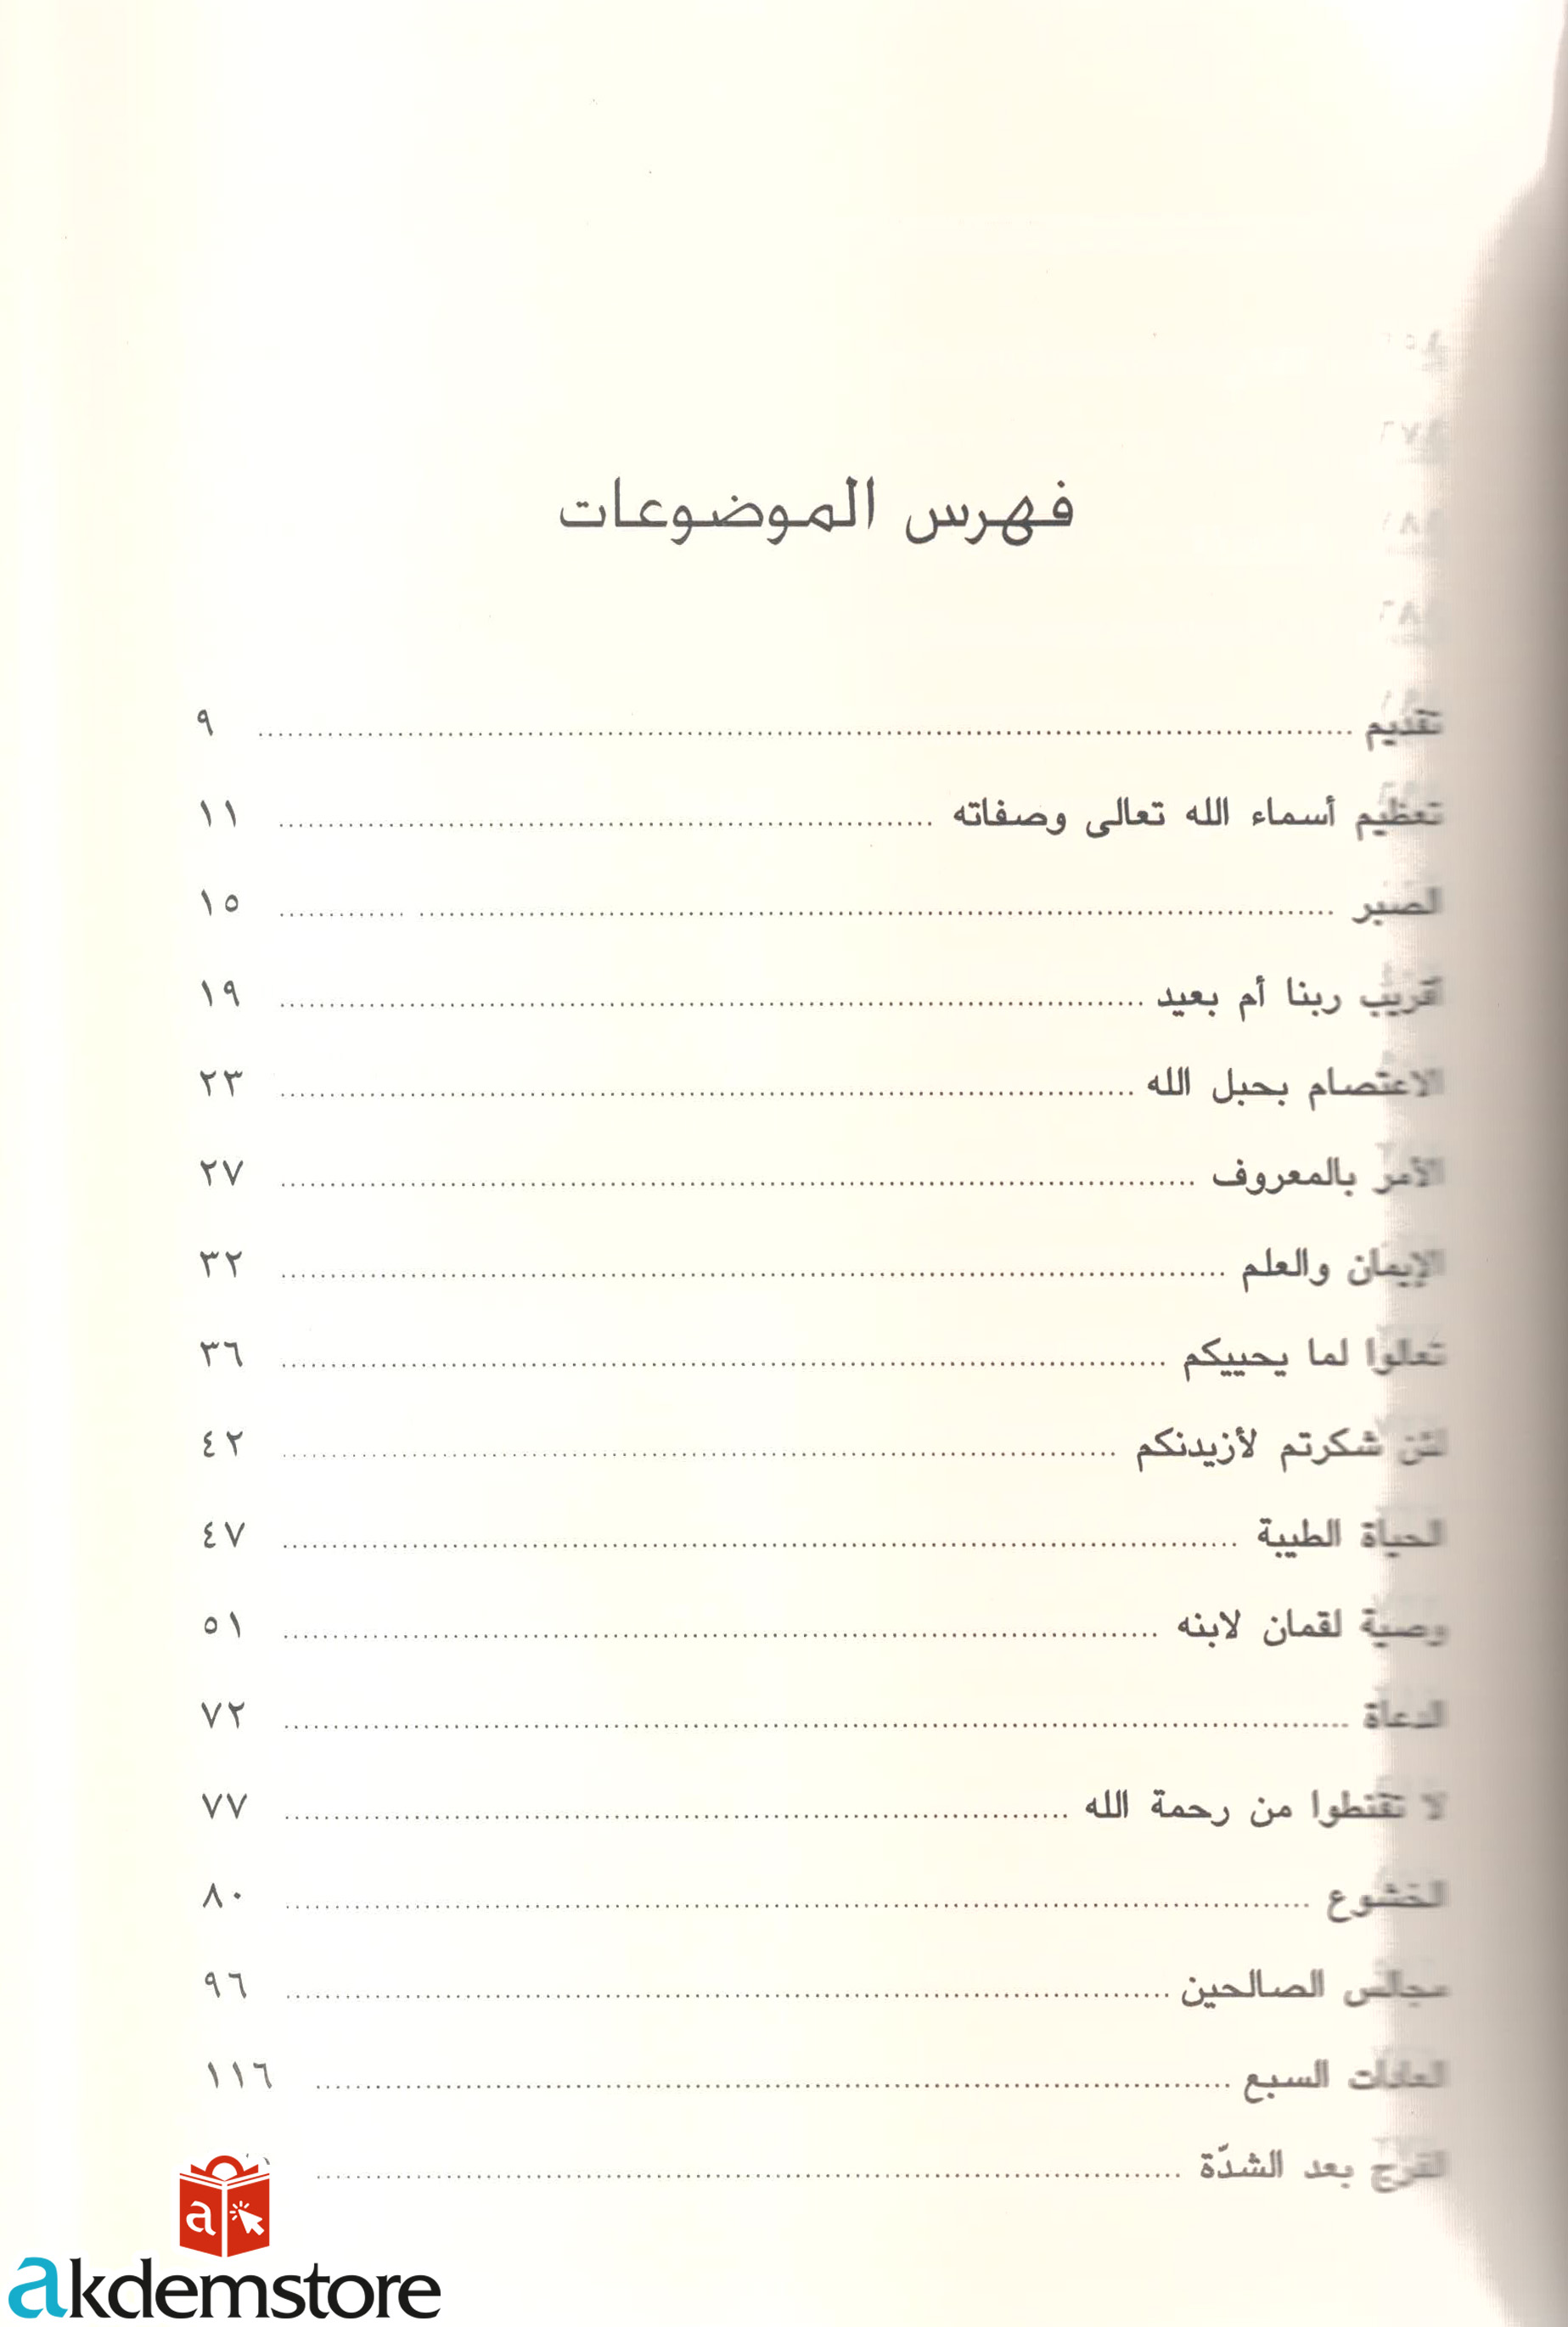 فهرس الموضوعات
تقديم ........ ٩
تعظيم أسماء الله تعالى وصفاته ........ ١١
الصبر ........ ١٥
أقريب ربنا أم بعيد ........ ١٩
الاعتصام بحبل الله ........ ٢٣
الأمر بالمعروف ........ ٢٧
الإيمان والعلم ........ ٣٢
تعالوا لما يحييكم ........ ٣٦
لئن شكرتم لأزيدنكم ........ ٤٢
الحياة الطيبة ........ ٤٧
وصية لقمان لابنه ........ ٥١
الدعاة ........ ٧٢
لا تقنطوا من رحمة الله ........ ٧٧
الخشوع ........ ٨٠
مجالس الصالحين ........ ٩٦
العادات السبع ........ ١١٦
الفرج بعد الشدّة ........
a
akdemstore